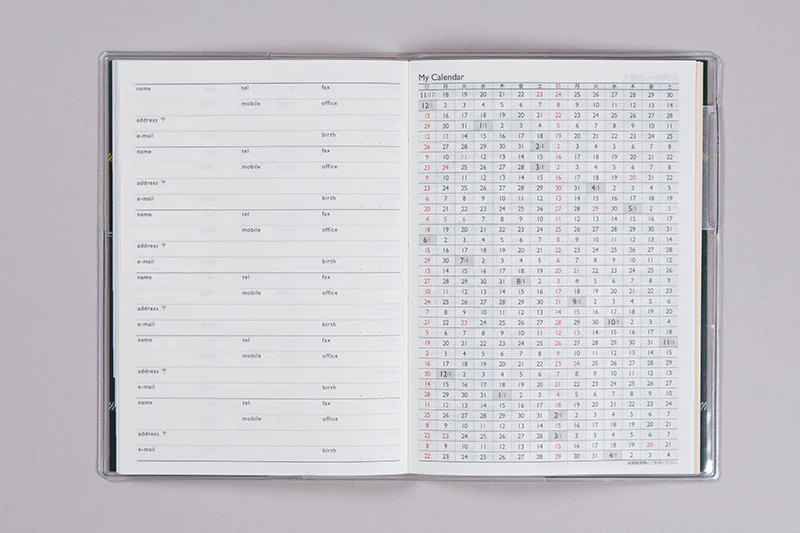 name tel fax
mobile office
address 〒
e-mail birth
name tel fax
mobile office
address 〒
e-mail birth
name tel fax
mobile office
address 〒
e-mail birth
name tel fax
mobile office
address 〒
e-mail birth
name tel fax
mobile office
address 〒
e-mail birth
name tel fax
mobile office
address 〒
e-mail birth
My Calendar
日 月 火 水 木 金 土 日 月 火 水 木 金 土
11/17 18 19 20 21 22 23 24 25 26 27 28 29 30
12/1 2 3 4 5 6 7 8 9 10 11 12 13 14
15 16 17 18 19 20 21 22 23 24 25 26 27 28
29 30 31 1/1 2 3 4 5 6 7 8 9 10 11
12 13 14 15 16 17 18 19 20 21 22 23 24 25
26 27 28 29 30 31 2/1 2 3 4 5 6 7 8
9 10 11 12 13 14 15 16 17 18 19 20 21 22
23 24 25 26 27 28 3/1 2 3 4 5 6 7 8
9 10 11 12 13 14 15 16 17 18 19 20 21 22
23 24 25 26 27 28 29 30 31 4/1 2 3 4 5
6 7 8 9 10 11 12 13 14 15 16 17 18 19
20 21 22 23 24 25 26 27 28 29 30 5/1 2 3
4 5 6 7 8 9 10 11 12 13 14 15 16 17
18 19 20 21 22 23 24 25 26 27 28 29 30 31
6/1 2 3 4 5 6 7 8 9 10 11 12 13 14
15 16 17 18 19 20 21 22 23 24 25 26 27 28
29 30 7/1 2 3 4 5 6 7 8 9 10 11 12
13 14 15 16 17 18 19 20 21 22 23 24 25 26
27 28 29 30 31 8/1 2 3 4 5 6 7 8 9
10 11 12 13 14 15 16 17 18 19 20 21 22 23
24 25 26 27 28 29 30 31 9/1 2 3 4 5 6
7 8 9 10 11 12 13 14 15 16 17 18 19 20
21 22 23 24 25 26 27 28 29 30 10/1 2 3 4
5 6 7 8 9 10 11 12 13 14 15 16 17 18
19 20 21 22 23 24 25 26 27 28 29 30 31 11/1
2 3 4 5 6 7 8 9 10 11 12 13 14 15
16 17 18 19 20 21 22 23 24 25 26 27 28 29
30 12/1 2 3 4 5 6 7 8 9 10 11 12 13
14 15 16 17 18 19 20 21 22 23 24 25 26 27
28 29 30 31 1/1 2 3 4 5 6 7 8 9 10
11 12 13 14 15 16 17 18 19 20 21 22 23 24
25 26 27 28 29 30 31 2/1 2 3 4 5 6 7
8 9 10 11 12 13 14 15 16 17 18 19 20 21
22 23 24 25 26 27 28 3/1 2 3 4 5 6 7
8 9 10 11 12 13 14 15 16 17 18 19 20 21
22 23 24 25 26 27 28 29 30 31 4/1 2 3 4